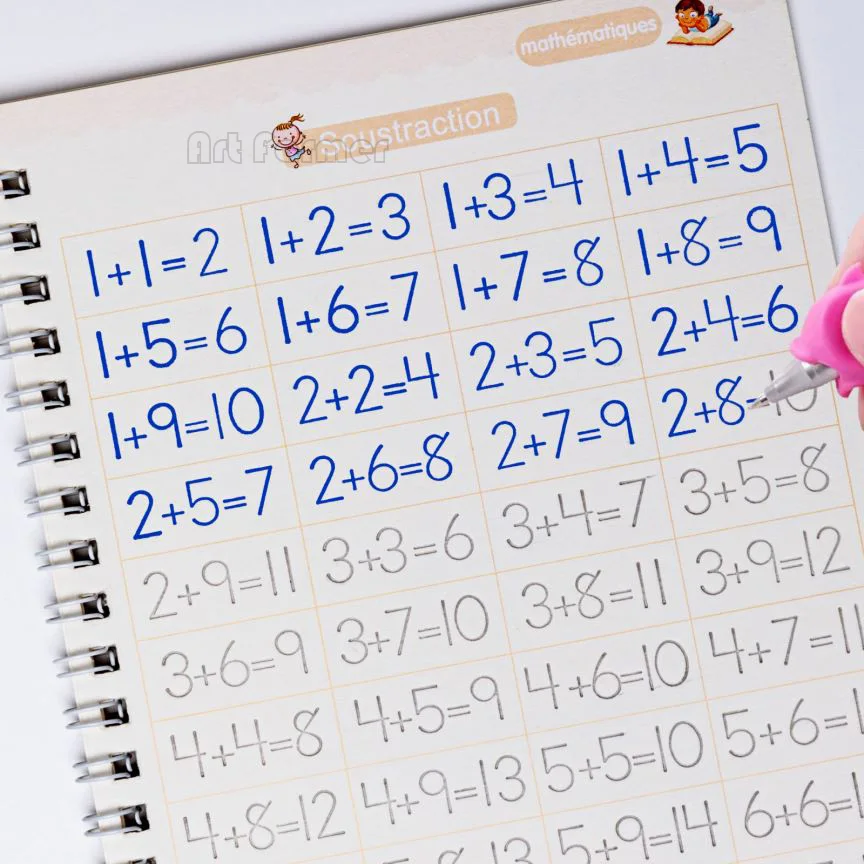 mathématiques
Soustraction
Art Farmer
1+1=2 1+2=3 1+3=4 1+4=5
1+5=6 1+6=7 1+7=8 1+8=9
1+9=10 2+2=4 2+3=5 2+4=6
2+5=7 2+6=8 2+7=9 2+8=10
2+9=11 3+3=6 3+4=7 3+5=8
3+6=9 3+7=10 3+8=11 3+9=12
4+4=8 4+5=9 4+6=10 4+7=11
4+8=12 4+9=13 5+5=10 5+6=1
5+9=14 6+6=1